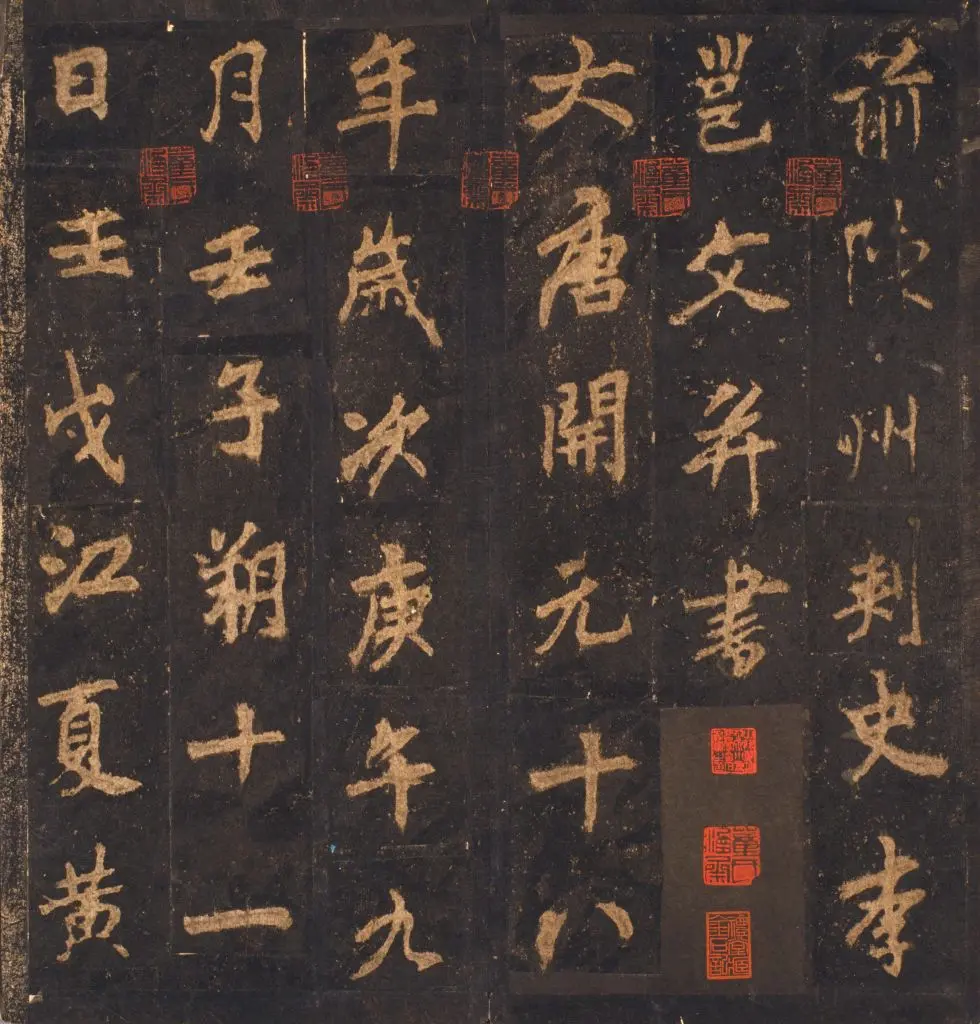 前陳州刺史李
邕文并書
大唐開元十八
年歲次庚午九
月壬子朔十一
日壬戌江夏黃